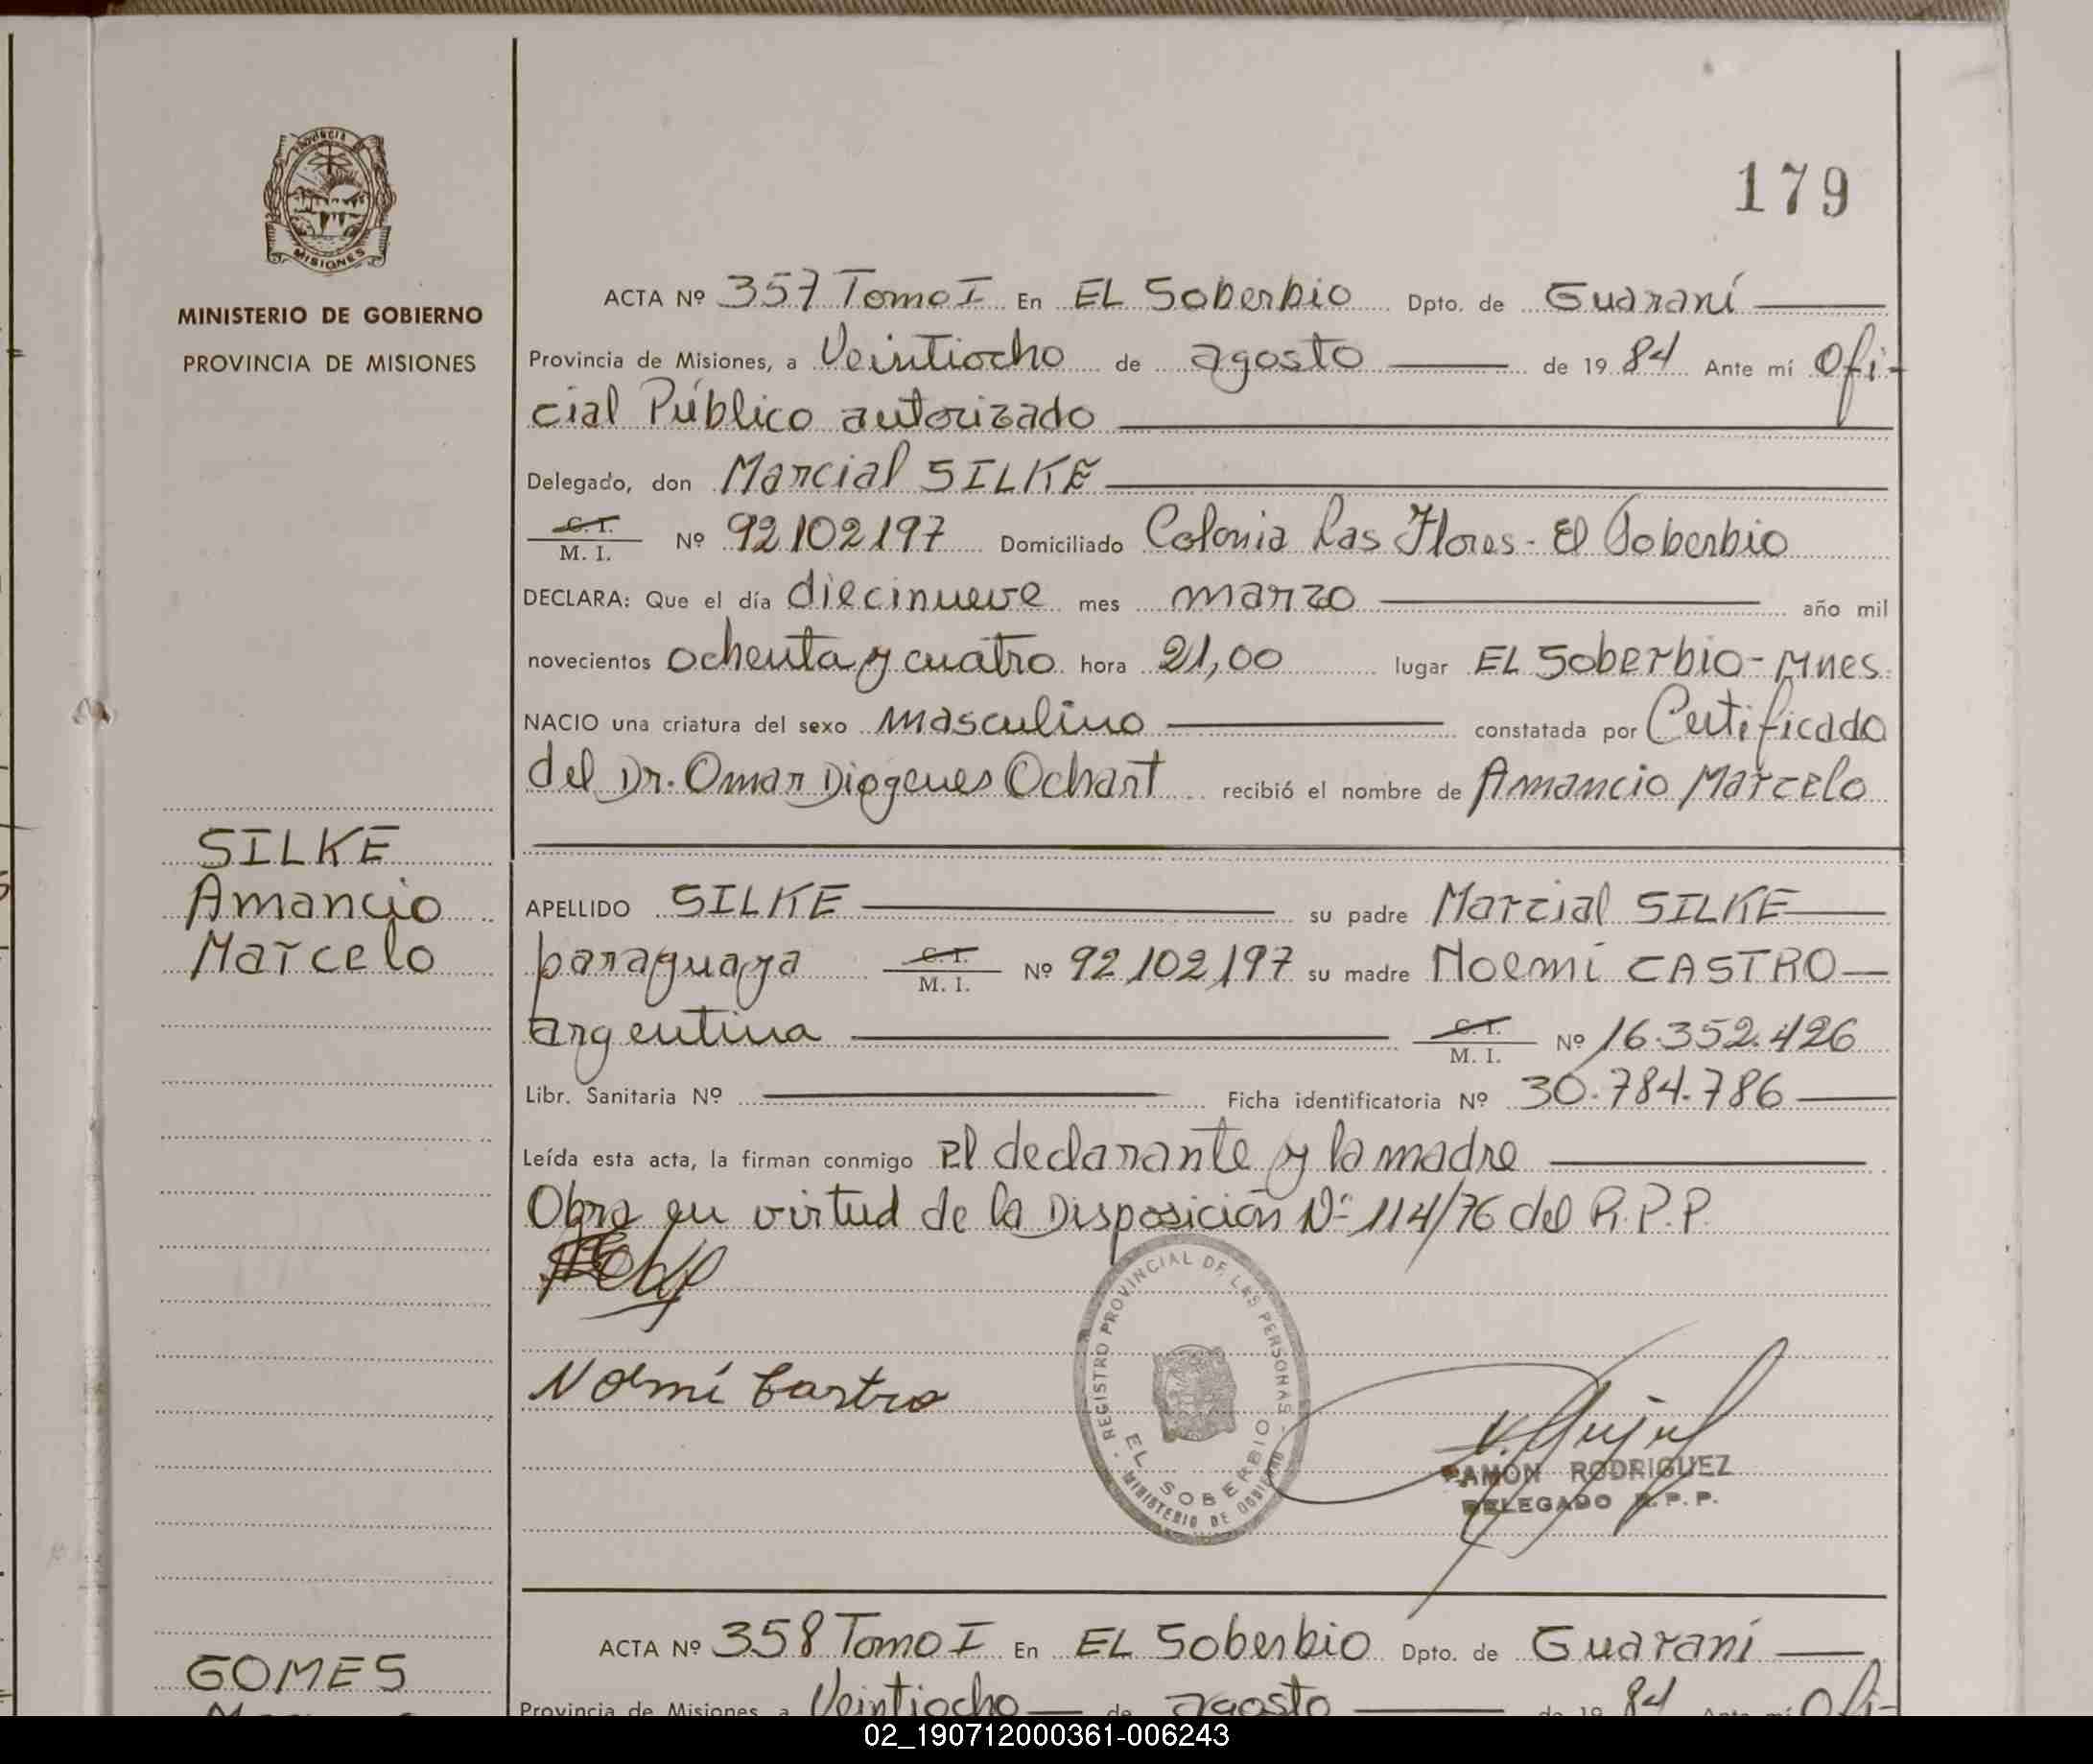 PROVINCIA DE
MISIONES
MINISTERIO DE GOBIERNO
PROVINCIA DE MISIONES
179
ACTA Nº 357 Tomo I En EL Soberbio Dpto. de Guaraní
Provincia de Misiones, a Veintiocho de agosto de 1984 Ante mí Ofi-
cial Público autorizado
Delegado, don Marcial SILKE
C. I.
M. I. Nº 92.102.197 Domiciliado Colonia Las Flores - El Soberbio
DECLARA: Que el día diecinueve mes marzo año mil
novecientos ochenta y cuatro hora 21,00 lugar EL Soberbio - Mnes.
NACIO una criatura del sexo masculino constatada por Certificado
del Dr. Omar Diogenes Ochart recibió el nombre de Amancio Marcelo
SILKE
Amancio
Marcelo
APELLIDO SILKE su padre Marcial SILKE
paraguaya C. I.
M. I. Nº 92.102.197 su madre Noemí CASTRO
argentina C. I.
M. I. Nº 16.352.426
Libr. Sanitaria Nº Ficha identificatoria Nº 30.784.786
Leída esta acta, la firman conmigo El declarante y la madre
Obra en virtud de la Disposición Nº 114/76 del R.P.P.
Noemí Castro
REGISTRO PROVINCIAL DE LAS PERSONAS
EL SOBERBIO
MINISTERIO DE GOBIERNO
RAMON RODRIGUEZ
DELEGADO R.P.P.
ACTA Nº 358 Tomo I En EL Soberbio Dpto. de Guaraní
GOMES
Provincia de Misiones, a Veintiocho de agosto de 1984 Ante mí Ofi-
02_190712000361-006243